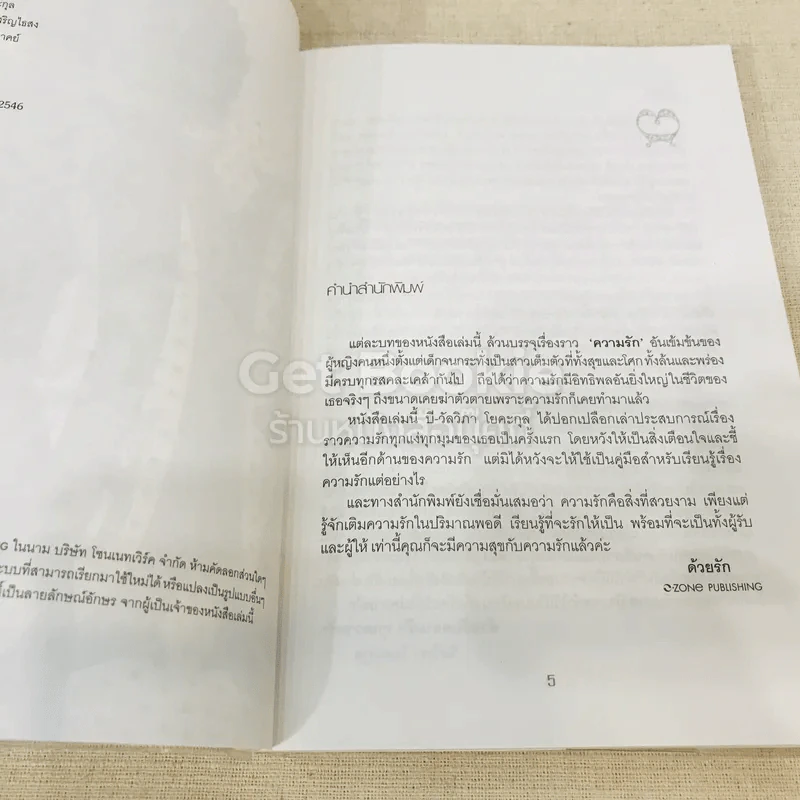 2546
G ในนาม บริษัท โซนเนทเวิร์ค จำกัด ห้ามคัดลอกส่วนใดๆ
ระบบที่สามารถเรียกมาใช้ใหม่ได้ หรือแปลงเป็นรูปแบบอื่นๆ
เป็นลายลักษณ์อักษร จากผู้เป็นเจ้าของหนังสือเล่มนี้
คำนำสำนักพิมพ์
แต่ละบทของหนังสือเล่มนี้ ล้วนบรรจุเรื่องราว ‘ความรัก’ อันเข้มข้นของ
ผู้หญิงคนหนึ่งตั้งแต่เด็กจนกระทั่งเป็นสาวเต็มตัวที่ทั้งสุขและโศก ทั้งล้นและพร่อง
มีครบทุกรสคละเคล้ากันไป ถือได้ว่าความรักมีอิทธิพลอันยิ่งใหญ่ในชีวิตของ
เธอจริงๆ ถึงขนาดเคยฆ่าตัวตายเพราะความรักก็เคยทำมาแล้ว
หนังสือเล่มนี้ บี-วัลวิภา โยคะกุล ได้ปอกเปลือกเล่าประสบการณ์เรื่อง
ราวความรักทุกแง่ทุกมุมของเธอเป็นครั้งแรก โดยหวังให้เป็นสิ่งเตือนใจและชี้
ให้เห็นอีกด้านของความรัก แต่มิได้หวังจะให้ใช้เป็นคู่มือสำหรับเรียนรู้เรื่อง
ความรักแต่อย่างไร
และทางสำนักพิมพ์ยังเชื่อมั่นเสมอว่า ความรักคือสิ่งที่สวยงาม เพียงแต่
รู้จักเติมความรักในปริมาณพอดี เรียนรู้ที่จะรักให้เป็น พร้อมที่จะเป็นทั้งผู้รับ
และผู้ให้ เท่านี้คุณก็จะมีความสุขกับความรักแล้วค่ะ
ด้วยรัก
O-ZONE PUBLISHING
5